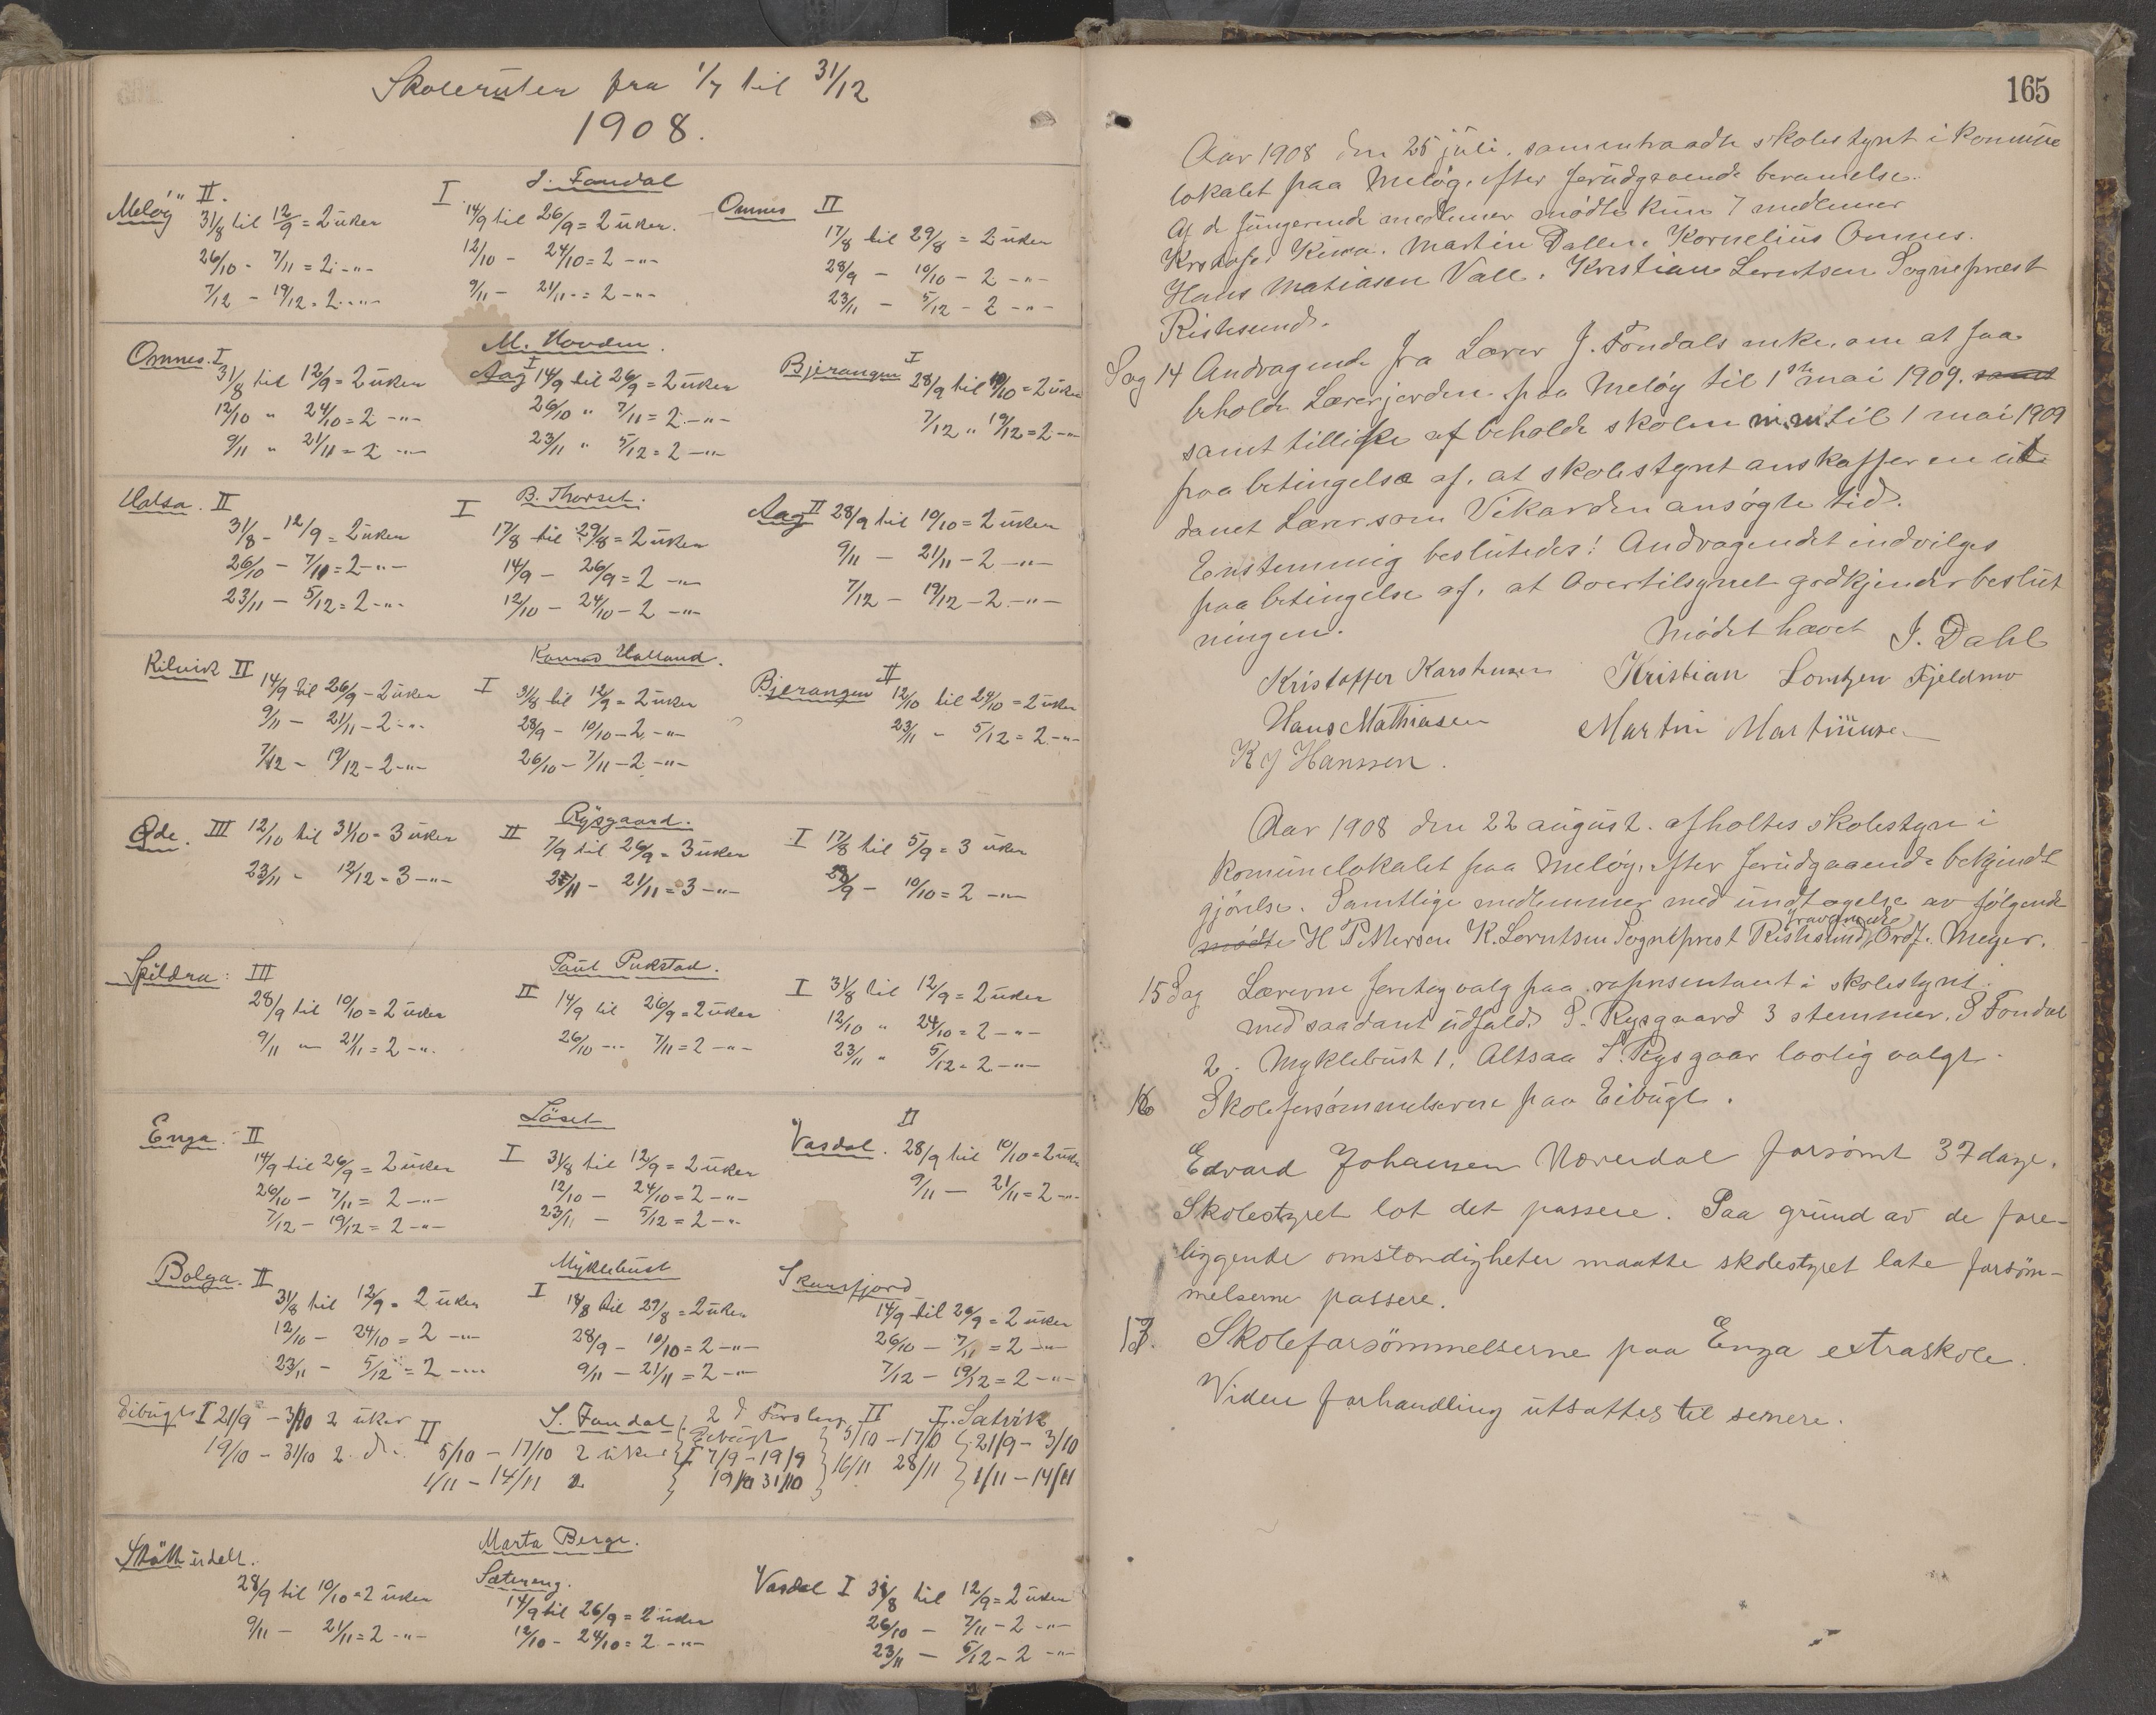 Skoleruten fra 1/7 til 31/12
1908.
J. Fondal
Meløy II.
31/8 til 12/9 = 2 uker
26/10 - 7/11 = 2 -"-
7/12 - 19/12 = 2 -"-
I
14/9 til 26/9 = 2 uker.
12/10 - 24/10 = 2 -"-
9/11 - 21/11 = 2 -"-
Omnes II
17/8 til 29/8 = 2 uker
28/9 - 10/10 - 2 -"-
23/11 - 5/12 - 2 -"-
M. Hovden.
Omnes. I
31/8 til 12/9 = 2 uker
12/10 " 24/10 = 2 -"-
9/11 " 21/11 = 2 -"-
Aag I 14/9 til 26/9 = 2 uker
26/10 " 7/11 = 2 -"-
23/11 " 5/12 = 2 -"-
Bjerangen I
28/9 til 10/10 = 2 uker
7/12 " 19/12 = 2 -"-
B. Thorset.
Halsa. II
31/8 - 12/9 = 2 uker
26/10 - 7/11 = 2 -"-
23/11 - 5/12 = 2 -"-
I
17/8 til 29/8 = 2 uker
14/9 - 26/9 = 2 -"-
12/10 - 24/10 - 2 -"-
Aag II 28/9 til 10/10 = 2 uker
9/11 - 21/11 - 2 -"-
7/12 - 19/12 - 2 -"-
Konrad Halland.
Kilvik II
14/9 til 26/9 - 2 uker
9/11 - 21/11 - 2 -"-
7/12 - 19/12 - 2 -"-
I
31/8 til 12/9 = 2 uker
28/9 - 10/10 - 2 -"-
26/10 - 7/11 - 2 -"-
Bjerangen II
12/10 til 24/10 = 2 uker
23/11 - 5/12 = 2 -"-
Rysgaard.
Øde. III 12/10 til 31/10 = 3 uker
23/11 - 12/12 = 3 -"-
II
7/9 til 26/9 = 3 uker
- 21/11 = 3 -"-
I 17/8 til 5/9 = 3 uker
- 10/10 = 2 -"-
Paul Pukstad.
Spildra: III
28/9 til 10/10 = 2 uker
9/11 - 21/11 = 2 -"-
II
14/9 til 26/9 = 2 uker
26/10 - 7/11 = 2 -"-
I 31/8 til 12/9 = 2 uker
12/10 " 24/10 = 2 -"-
23/11 " 5/12 = 2 -"-
Løset
Enga. II
14/9 til 26/9 = 2 uker
26/10 - 7/11 = 2 -"-
7/12 - 19/12 = 2 -"-
I
31/8 til 12/9 = 2 uker
12/10 - 24/10 = 2 -"-
23/11 - 5/12 = 2 -"-
Vasdal. II
28/9 til 10/10 = 2 uker
9/11 - 21/11 = 2 -"-
Myklebust
Bolga. II
31/8 til 12/9 = 2 uker
12/10 - 24/10 = 2 -"-
23/11 - 5/12 = 2 -"-
I
til 27/8 = 2 uker
28/9 - 10/10 = 2 -"-
9/11 - 21/11 = 2 -"-
Skensfjord
14/9 til 26/9 = 2 uker
26/10 - 7/11 = 2 -"-
7/12 - 19/12 = 2 -"-
Eibugt I 21/9 - 3/10 2 uker
19/10 - 31/10 2 do
II
5/10 - 17/10 2 uker
1/11 - 14/11 2
S. Fondal
Eibugt
I 7/9 - 19/9
19/10 31/10
II
5/10 - 17/10
16/11 28/11
I. Satvik
21/9 - 3/10
1/11 - 14/11
Marta Berge.
Støtt udelt.
28/9 til 10/10 = 2 uker
9/11 - 21/11 = 2 -"-
Sætereng.
14/9 til 26/9 = 2 uker
12/10 - 24/10 = 2 -"-
Vasdal I 31/8 til 12/9 = 2 uker
26/10 - 7/11 - 2 -"-
23/11 - 5/12 - 2 -"-
165
Aar 1908 den 25 juli. sammentraadte skolestyret i komune
lokalet paa Meløy, efter forudgaaende berammelse.
Af de fungerende medlemer mødte kun 7 medlemer
Martin Dallen. Kornelius Omnes.
Hans Matiasen Vall. Kristian Lorentsen Sogneprest
Ristesund.
Sag 14 Andragende fra Lærer J. Fondals enke, om at faa
beholde Lærerjorden paa Meløy til 1ste mai 1909. samt
samt tillike af beholde skolen m.m. til 1 mai 1909
paa betingelse af, at skolestyret anskaffer en ud
danet Lærer som Vikar den ansøgte tid.
Enstemmig besluttedes! Andragendet indvilges
paa betingelse af, at Overtilsynet godkjender beslut
ningen.
Mødet hævet J. Dahl
Kristoffer Karstensen Kristian Lorntzen Fjeldmo
Hans Mathiasen Martin Martinusen
K J Hanssen.
Aar 1908 den 22 august. afholtes skolestyre i
komunelokalet paa Meløy, efter forudgaaende bekjendt
gjørelse. Samtlige medlemmer med undtagelse av følgende
fraværende
mødte H Pettersen K. Lorntsen Sogneprest Ristesund, Ordf. Meyer.
15 Sag Lærerne foretog valg paa representant i skolestyret
med saadant udfald, S. Rysgaard 3 stemmer. S Fondal
2. Myklebust 1, Altsaa S. Rysgaar lovlig valgt.
16 Skoleforsømmelserne paa Eibugt.
Edvard Johansen Næverdal forsømt 37 dage.
Skolestyret lot det passere. Paa grund av de fore-
liggende omstændigheter maatte skolestyret late forsøm-
melserne passere.
17. Skoleforsømmelserne paa Enga extraskole.
Viden forhandling utsattes til senere.